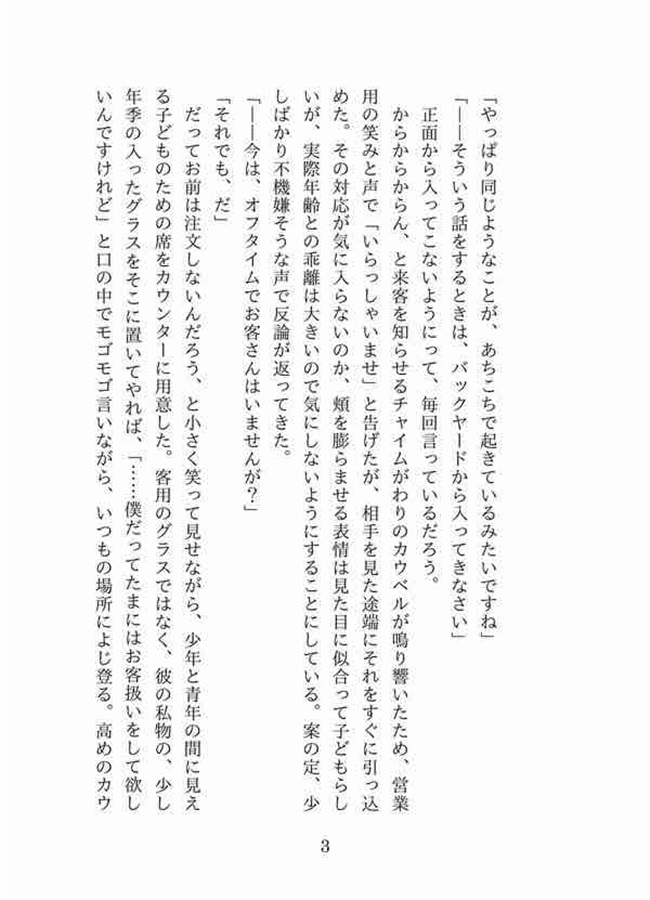 「やっぱり同じようなことが、あちこちで起きているみたいですね」
「――そういう話をするときは、バックヤードから入ってきなさい」
正面から入ってこないようにって、毎回言っているだろう。
からからからん、と来客を知らせるチャイムがわりのカウベルが鳴り響いたため、営業
用の笑みと声で「いらっしゃいませ」と告げたが、相手を見た途端にそれをすぐに引っ込
めた。その対応が気に入らないのか、頬を膨らませる表情は見た目に似合って子どもらし
いが、実際年齢との乖離は大きいので気にしないようにすることにしている。案の定、少
しばかり不機嫌そうな声で反論が返ってきた。
「――今は、オフタイムでお客さんはいませんが？」
「それでも、だ」
だってお前は注文しないんだろう、と小さく笑って見せながら、少年と青年の間に見え
る子どものための席をカウンターに用意した。客用のグラスではなく、彼の私物の、少し
年季の入ったグラスをそこに置いてやれば、「……僕だってたまにはお客扱いをして欲し
いんですけれど」と口の中でモゴモゴ言いながら、いつもの場所によじ登る。高めのカウ
3